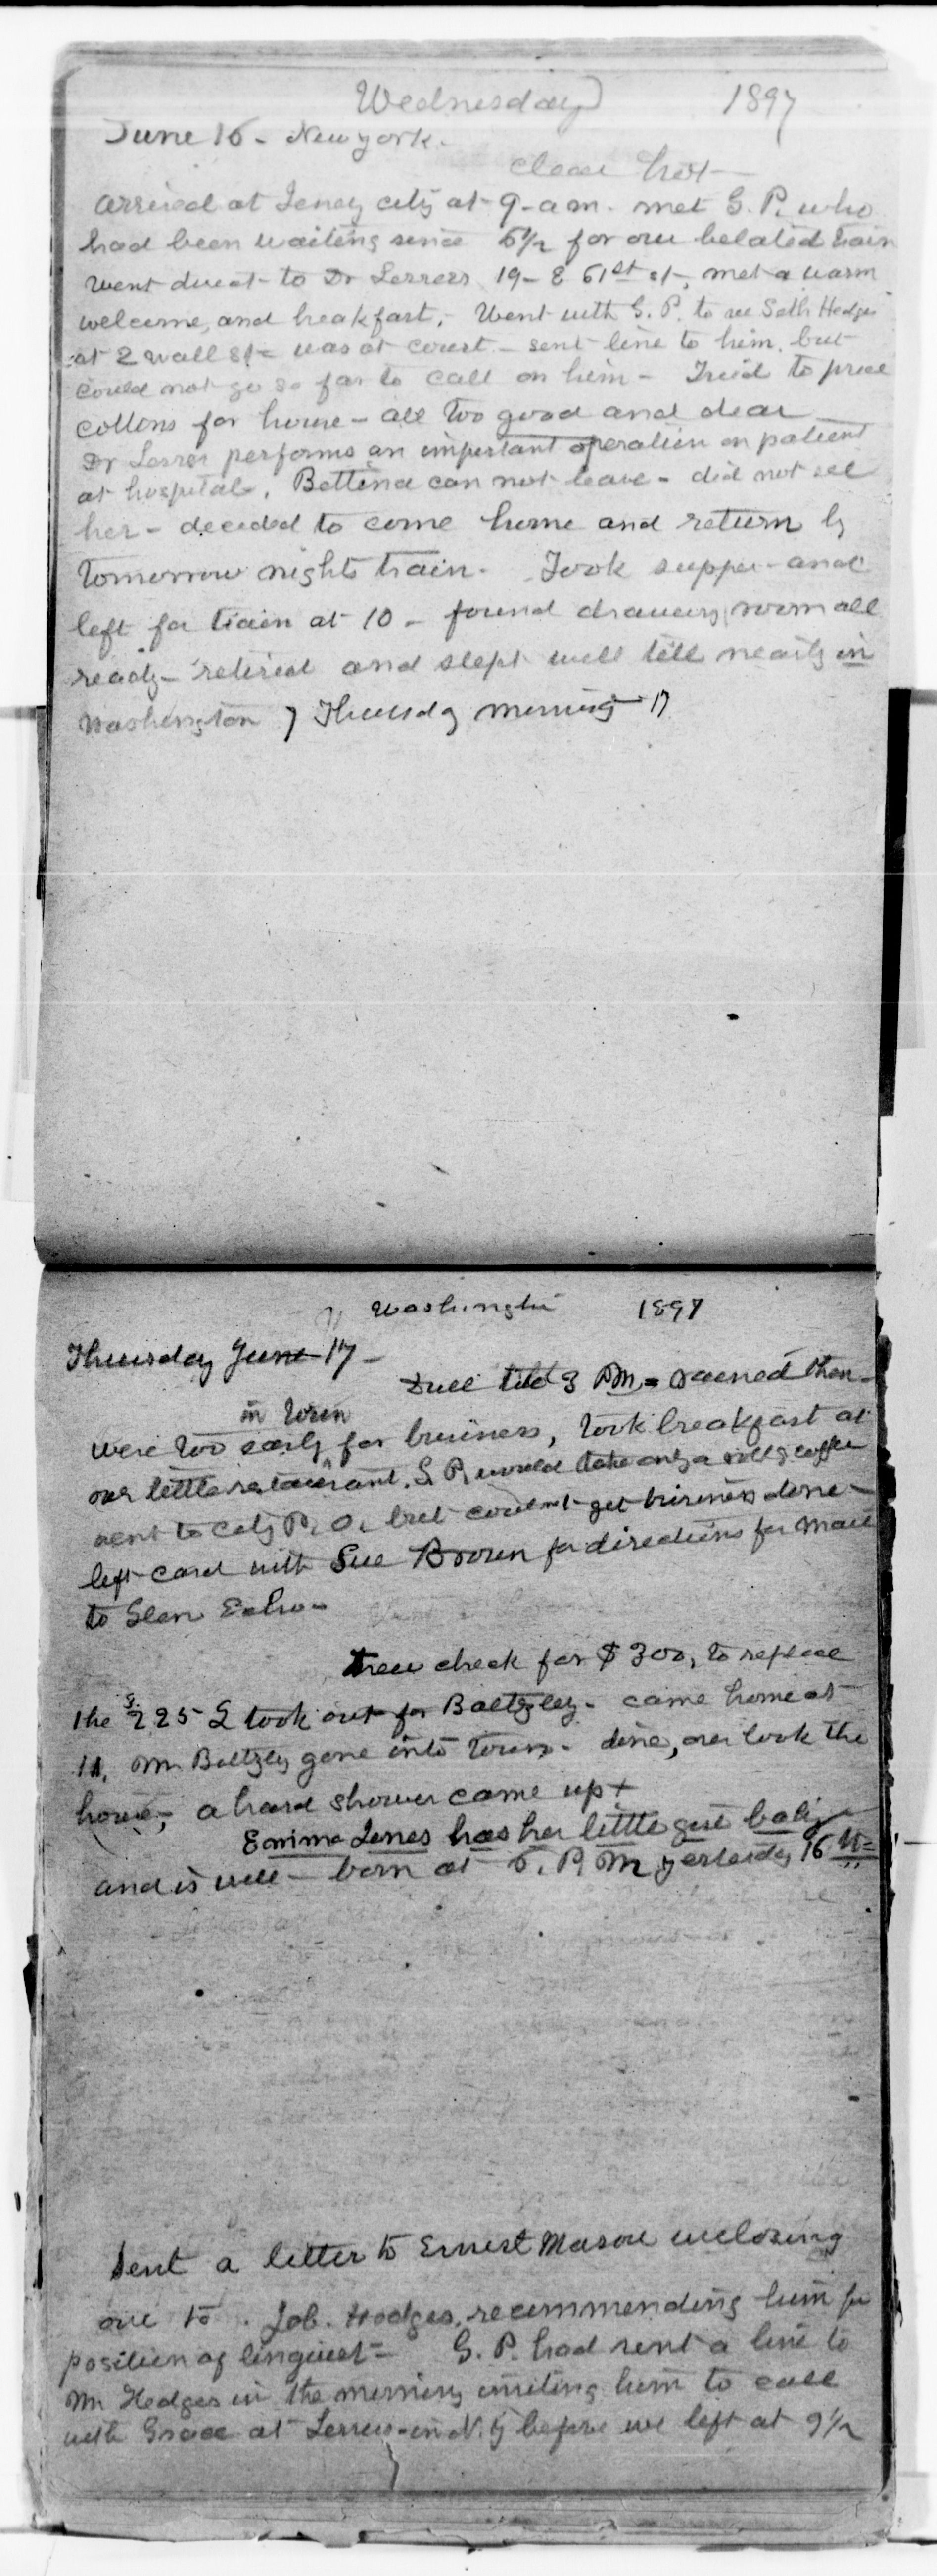 Wednesday 1897
June 16 - New york.
clear hot -
arrived at Jersey city at 9 - a m. met G. P. who
had been waiting since 6 1/2 for our belated train
went direct to Dr Lessers 19 - E 61st st, met a warm
welcome, and breakfast, - Went with G. P. to see Seth Hedges
at 2 wall st = was at court. - sent line to him. but
could not go so far to call on him - Tried to price
cottons for home - all too good and dear
Dr Lesser performs an important operation on patient
at hospital. Bettina can not leave - did not see
her - decided to come home and return by
tomorrow nights train. Took supper and
left for train at 10 - found drawing room all
ready - retired and slept well till nearly in
Washington, Thursday morning 17
Washington 1897
Thursday June 17 -
Dull till 3 P.M. = rained then -
in town
were too early for business, took breakfast at
our little restaurant. G P. would take only a roll & coffee
went to City P. O. but couldnt get business done -
left card with Sue Brown for directions for mail
to Glen Echo -
Drew check for $300, to replace
the $225 I took out for Baltzley - came home at
11. Mr Baltzley gone into town - dine, over look the
house, a hard shower came up +
Emma Jones has her little girl baby
and is well - born at 5. P. M yesterday 16
Sent a letter to Ernest Mason inclosing
one to Job. Hedges, recommending him for
position of linguist = G. P. had sent a line to
Mr Hedges in the morning inviting him to call
with Grace at Lessers in N. Y before we left at 9 1/2